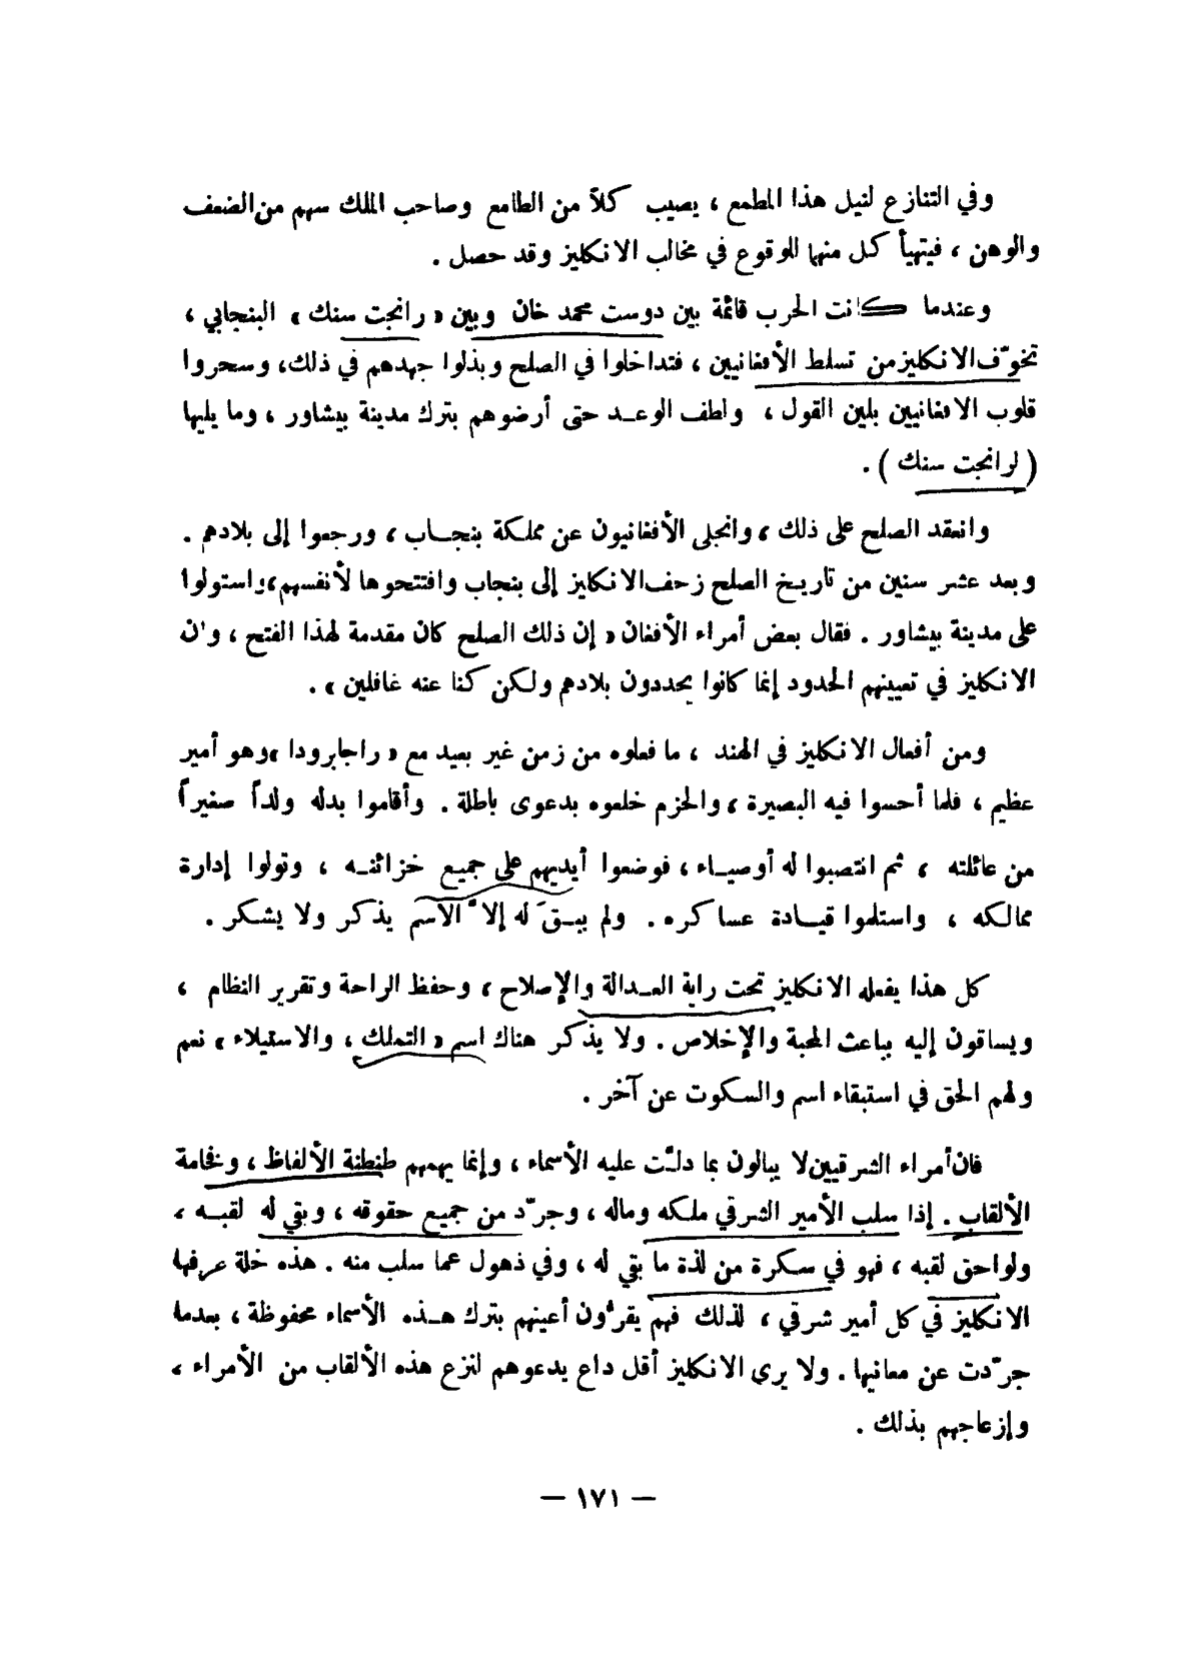 وفي التنازع لنيل هذا المطمع ، يصيب كلاً من الطامع وصاحب الملك سهم من الضعف
والوهن ، فيتهيأ كل منهما للوقوع في مخالب الانكليز وقد حصل .
وعندما كانت الحرب قائمة بين دوست محمد خان وبين « رانجت سنك » البنجابي ،
تخوّف الانكليز من تسلط الأفغانيين ، فتداخلوا في الصلح وبذلوا جهدهم في ذلك، وسحروا
قلوب الافغانيين بلين القول ، ولطف الوعـد حتى أرضوهم بترك مدينة بيشاور ، وما يليها
( لرانجت سنك ) .
وانعقد الصلح على ذلك ، وانجلى الأفغانيون عن مملكة بنجـاب ، ورجعوا إلى بلادهم .
وبعد عشر سنين من تاريخ الصلح زحف الانكليز إلى بنجاب وافتتحوها لأنفسهم، واستولوا
على مدينة بيشاور . فقال بعض أمراء الأفغان « إن ذلك الصلح كان مقدمة لهذا الفتح ، وان
الانكليز في تعيينهم الحدود إنما كانوا يحددون بلادهم ولكن كنا عنه غافلين » .
ومن أفعال الانكليز في الهند ، ما فعلوه من زمن غير بعيد مع « راجابرودا » وهو أمير
عظيم ، فلما أحسوا فيه البصيرة ، والحزم خلعوه بدعوى باطلة . وأقاموا بدله ولداً صغيراً
من عائلته ، ثم انتصبوا له أوصيـاء ، فوضعوا أيديهم على جميع خزائنـه ، وتولوا إدارة
ممالكه ، واستلموا قيـادة عساكره . ولم يبـقَ له إلاّ الاسم يذكر ولا يشكر .
كل هذا يفعله الانكليز تحت راية العـدالة والإصلاح ، وحفظ الراحة وتقرير النظام ،
ويساقون إليه بباعث المحبة والإخلاص . ولا يذكر هناك اسم « التملك ، والاستيلاء » نعم
ولهم الحق في استبقاء اسم والسكوت عن آخر .
فان أمراء الشرقيين لا يبالون بما دلـّت عليه الأسماء ، وإنما يهمهم طنطنة الألفاظ ، وفخامة
الألقاب . إذا سلب الأمير الشرقي ملكه وماله ، وجرّد من جميع حقوقه ، وبقي له لقبـه ،
ولواحق لقبه ، فهو في سكرة من لذة ما بقي له ، وفي ذهول عما سلب منه . هذه خلة عرفها
الانكليز في كل أمير شرقي ، لذلك فهم يقرّون أعينهم بترك هـذه الأسماء محفوظة ، بعدما
جرّدت عن معانيها . ولا يرى الانكليز أقل داع يدعوهم لنزع هذه الألقاب من الأمراء ،
وإزعاجهم بذلك .
— ١٧١ —